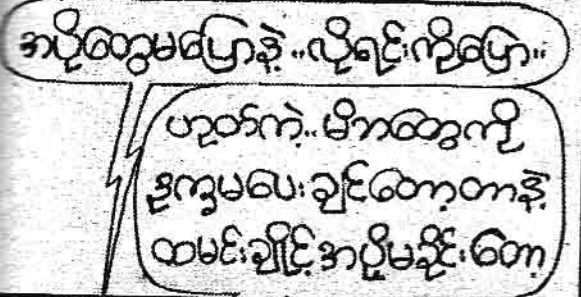 အပိုတွေမပြောနဲ့..လိုရင်းကိုပြော..
ဟုတ်ကဲ့..မိဘတွေကို
ဒုက္ခမပေးချင်တော့တာနဲ့
ထမင်းချိုင့်အပို့မခိုင်းတော့